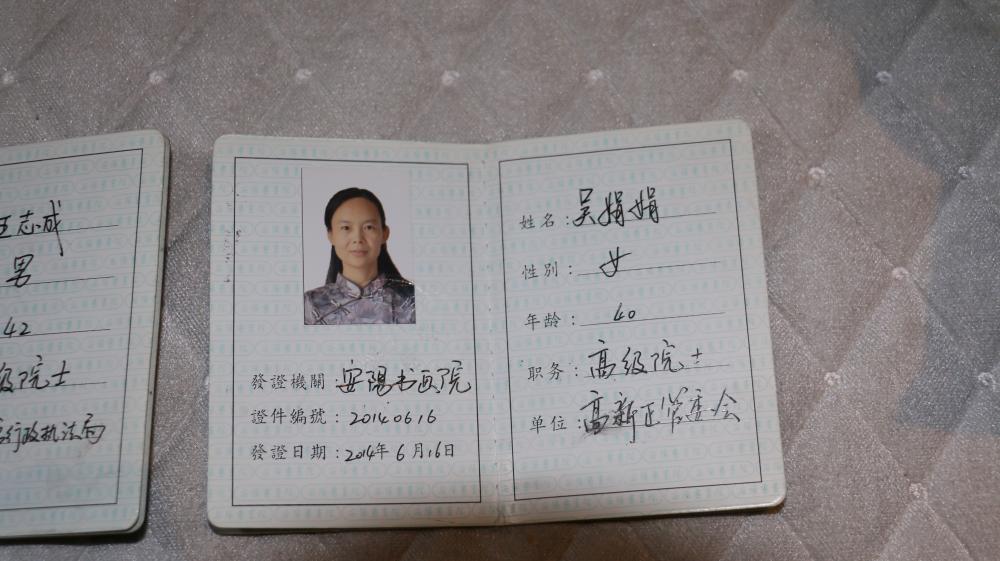 王志成
男
42
级院士
行政执法局
發證機關：安陽书画院
證件編號：20140616
發證日期：2014年6月16日
姓名：吴娟娟
性别：女
年龄：40
职务：高级院士
单位：高新区管委会